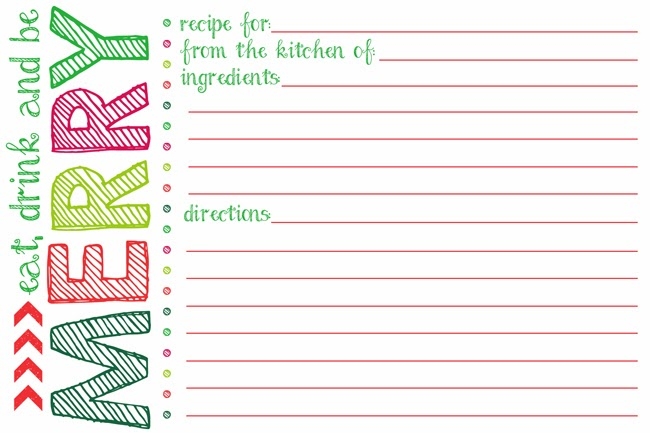 eat, drink and be
MERRY
recipe for:
from the kitchen of:
ingredients:
directions: